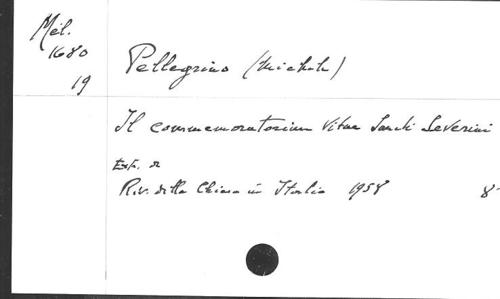 Mél.
1680
19
Pellegrino (Michele)
Il commemoratorium Vitae Sancti Severini
Extr. de
Riv. della Chiesa in Italia 1958 8°